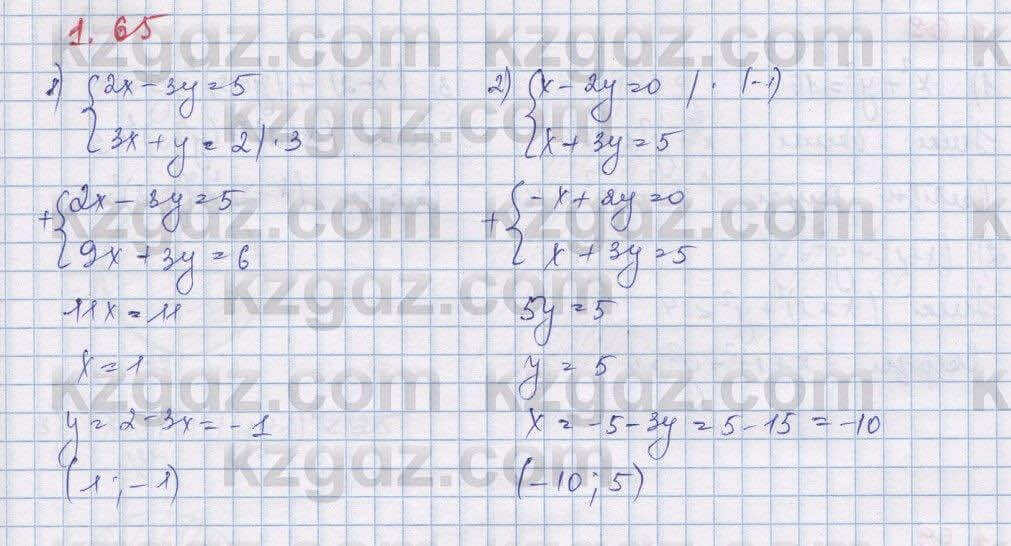 1.65
1) { 2x - 3y = 5
3x + y = 2 | · 3
+ { 2x - 3y = 5
9x + 3y = 6
11x = 11
x = 1
y = 2 - 3x = -1
(1; -1)
2) { x - 2y = 0 | · (-1)
x + 3y = 5
+ { -x + 2y = 0
x + 3y = 5
5y = 5
y = 5
x = -5 - 3y = 5 - 15 = -10
(-10; 5)
kzgdz.com
kzgdz.com
kzgdz.com
kzgdz.com
kzgdz.com
kzgdz.com
kzgdz.com
kzgdz.com
kzgdz.com
kzgdz.com
kzgdz.com